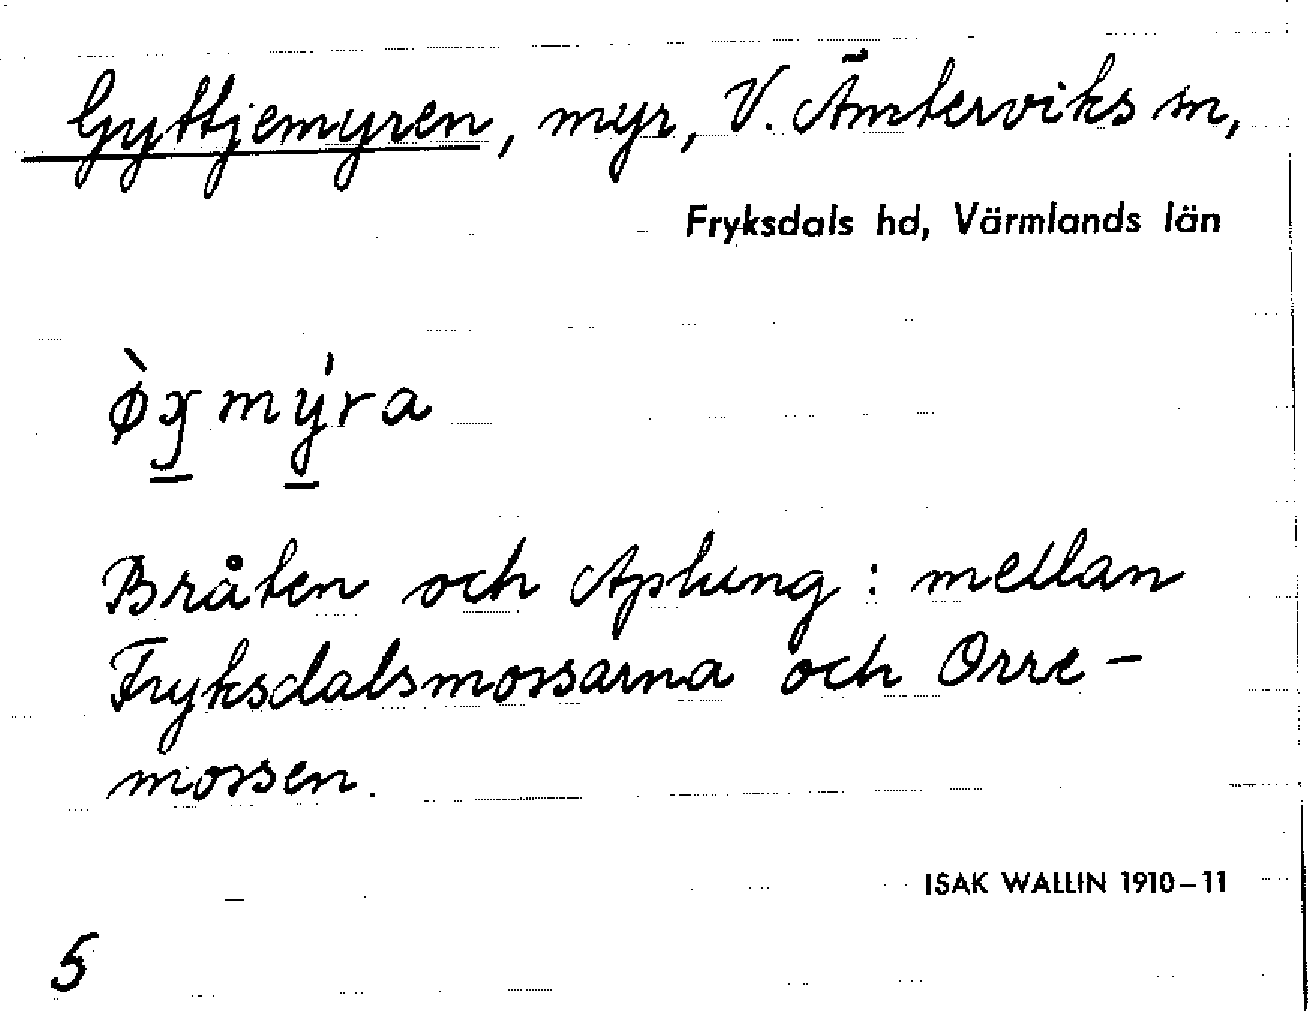 Gyttjemyren, myr, V. Ämterviks sn,
Fryksdals hd, Värmlands län
mýra
Bråten och Aplung : mellan
Fryksdalsmossarna och Orre-
mossen.
ISAK WALLIN 1910–11
5